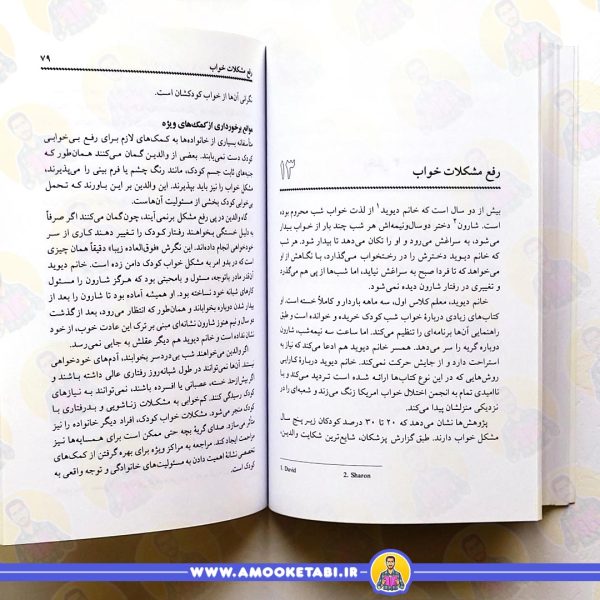 ۱۳
رفع مشکلات خواب
بیش از دو سال است که خانم دیوید۱ از لذت خواب شب محروم بوده
است. شارون۲ دختر دوسال‌ونیمه‌اش هر شب چند بار از خواب بیدار
می‌شود، به سراغش می‌رود و او را تکان می‌دهد تا بیدار شود. هر شب
که خانم دیوید دخترش را در رختخواب می‌گذارد، با نگاهش از او
می‌خواهد که تا فردا صبح به سراغش نیاید، اما شب‌ها از پی هم می‌گذرد
و تغییری در رفتار شارون دیده نمی‌شود.
خانم دیوید، معلم کلاس اول، سه ماهه باردار و کاملاً خسته است. او
کتاب‌های زیادی دربارهٔ خواب شب کودک خریده و خوانده است و طبق
راهنمایی آن‌ها برنامه‌ای را تنظیم می‌کند. اما ساعت سه نیمه‌شب، شارون
دوباره گریه را سر می‌دهد. همسر خانم دیوید هم ادعا می‌کند که نیاز به
استراحت دارد و از جایش حرکت نمی‌کند. خانم دیوید دربارهٔ کارایی
روش‌هایی که در این نوع کتاب‌ها ارائه شده است تردید می‌کند و با
ناامیدی تمام به انجمن اختلال خواب امریکا زنگ می‌زند و شعبه‌ای را در
نزدیکی منزلشان پیدا می‌کند.
پژوهش‌ها نشان می‌دهد که ۲۰ تا ۳۰ درصد کودکان زیر پنج سال
مشکل خواب دارند. طبق گزارش پزشکان، شایع‌ترین شکایت والدین،
1. David 2. Sharon
رفع مشکلات خواب ۷۹
نگرانی آن‌ها از خواب کودکشان است.
مواقع برخورداری از کمک‌های ویژه
متأسفانه بسیاری از خانواده‌ها به کمک‌های لازم برای رفع بی‌خوابی
کودک دست نمی‌یابند. بعضی از والدین گمان می‌کنند همان‌طور که
جنبه‌های ثابت جسم کودک، مانند رنگ چشم یا فرم بینی را می‌پذیرند،
مشکل خواب را نیز باید بپذیرند. این والدین بر این باورند که تحمل
بی‌خوابی کودک بخشی از مسئولیت آن‌هاست.
گاه والدین در پی رفع مشکل برنمی‌آیند، چون گمان می‌کنند اگر صرفاً
به دلیل خستگی بخواهند رفتار کودک را تغییر دهند کاری از سر
خودخواهی انجام داده‌اند. این نگرش «فوق‌العاده زیبا» دقیقاً همان چیزی
است که در بدو امر به مشکل خواب کودک دامن زده است. خانم دیوید
آن‌قدر مادر باتوجه، مسئول و بامحبتی بود که هرگز شارون را مسئول
کارهای شبانه خود نساخته بود. او همیشه آماده بود تا شارون را بعد از
بیدار شدن دوباره بخواباند و همان‌طور که انتظار می‌رود، بعد از گذشت
دو سال و نیم هنوز شارون نشانه‌ای مبنی بر ترک این عادت خوب، از خود
نشان نداده است و خانم دیوید هم دیگر عقلش به جایی نمی‌رسد.
اگر والدین می‌خواهند شب بی‌دردسر بخوابند، آدم‌های خودخواهی
نیستند. آن‌ها نمی‌توانند در طول شبانه‌روز رفتاری عالی داشته باشند و
اگر بیش از حد خسته، عصبانی یا افسرده باشند، نمی‌توانند به نیازهای
کودک رسیدگی کنند. کم‌خوابی به مشکلات زناشویی و بدرفتاری با
کودک منجر می‌شود. مشکلات خواب کودک، افراد دیگر خانواده را نیز
متأثر می‌سازد. صدای گریهٔ بچه حتی ممکن است برای همسایه‌ها نیز
مزاحمت ایجاد کند. مراجعه به مراکز ویژه برای بهره گرفتن از کمک‌های
تخصصی نشانهٔ اهمیت دادن به مسئولیت‌های خانوادگی و توجه واقعی به
کودک است.
WWW.AMOOKETABI.IR